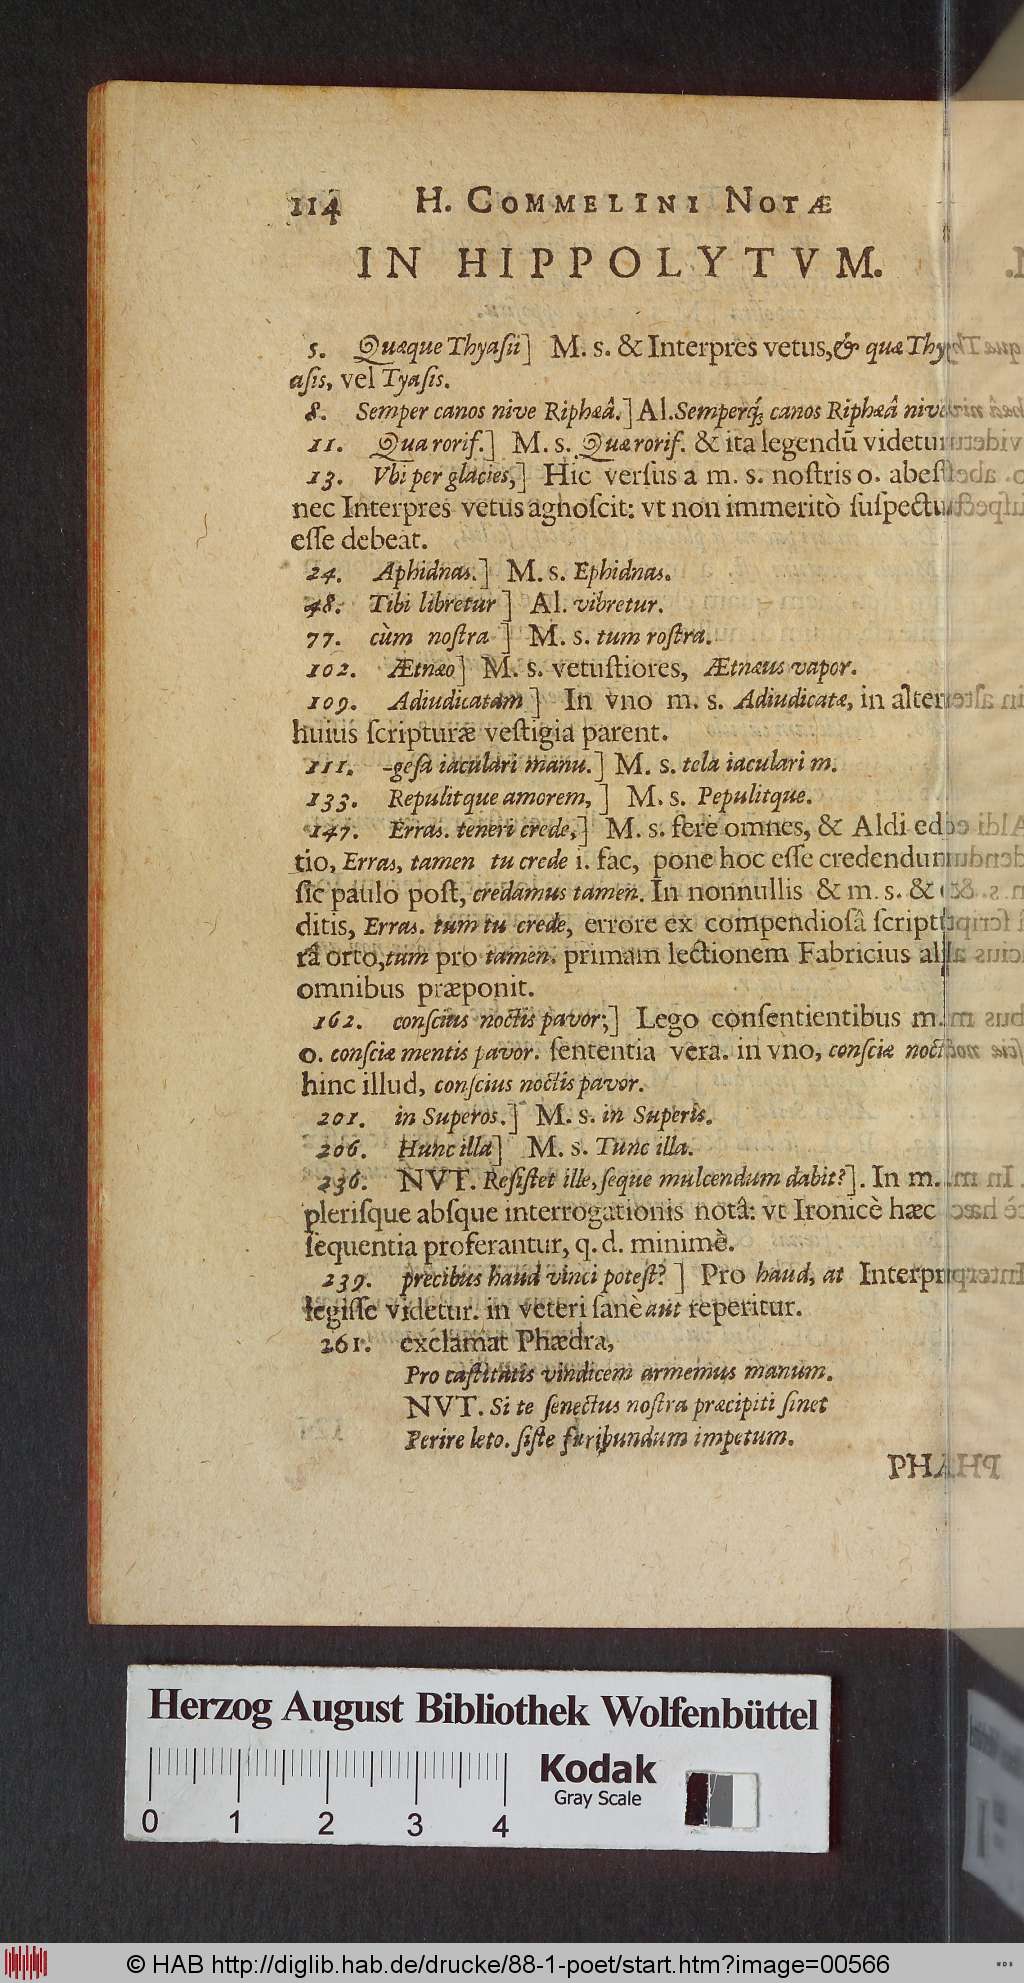 114 H. COMMELINI NOTÆ
IN HIPPOLYTVM.
5. Quæque Thyaſii] M. s. & Interpres vetus, & quæ Thy
aſis, vel Tyaſis.
8. Semper canos nive Riphæâ.] Al. Semperq́; canos Riphæâ
11. Qua rorif.] M. s. Quæ rorif. & ita legendū videtur
13. Vbi per glacies,] Hic verſus a m. s. noſtris o. abeſt
nec Interpres vetus agnoſcit: vt non immeritò ſuſpectus
eſſe debeat.
24. Aphidnas.] M. s. Ephidnas.
48. Tibi libretur] Al. vibretur.
77. cùm noſtra] M. s. tum roſtra.
102. Ætnæo] M. s. vetuſtiores, Ætnæus vapor.
109. Adiudicatam] In vno m. s. Adiudicatæ, in alter
huius ſcripturæ veſtigia parent.
111. -geſa iaculari manu.] M. s. tela iaculari m.
133. Repulitque amorem,] M. s. Pepulitque.
147. Erras. teneri crede,] M. s. fere omnes, & Aldi ed
tio, Erras, tamen tu crede i. fac, pone hoc eſſe credendum
ſic paulo poſt, credamus tamen. In nonnullis & m. s. &
ditis, Erras. tum tu crede, errore ex compendioſâ ſcriptu
râ orto, tum pro tamen. primam lectionem Fabricius
omnibus præponit.
162. conſcius noctis pavor;] Lego conſentientibus m.
o. conſciæ mentis pavor. ſententia vera. in vno, conſciæ noct
hinc illud, conſcius noctis pavor.
201. in Superos.] M. s. in Superis.
206. Hunc illa] M. s. Tunc illa.
236. NVT. Reſiſtet ille, ſeque mulcendum dabit?]. In m.
pleriſque abſque interrogationis notâ: vt Ironicè hæc
ſequentia proferantur, q. d. minimè.
239. precibus haud vinci poteſt?] Pro haud, at Interpr
legiſſe videtur. in veteri ſanè aut reperitur.
261. exclamat Phædra,
Pro caſtitatis vindicem armemus manum.
NVT. Si te ſenectus noſtra præcipiti ſinet
Perire leto. ſiſte furibundum impetum.
PHÆ
Herzog August Bibliothek Wolfenbüttel
Kodak
Gray Scale
0 1 2 3 4
© HAB http://diglib.hab.de/drucke/88-1-poet/start.htm?image=00566